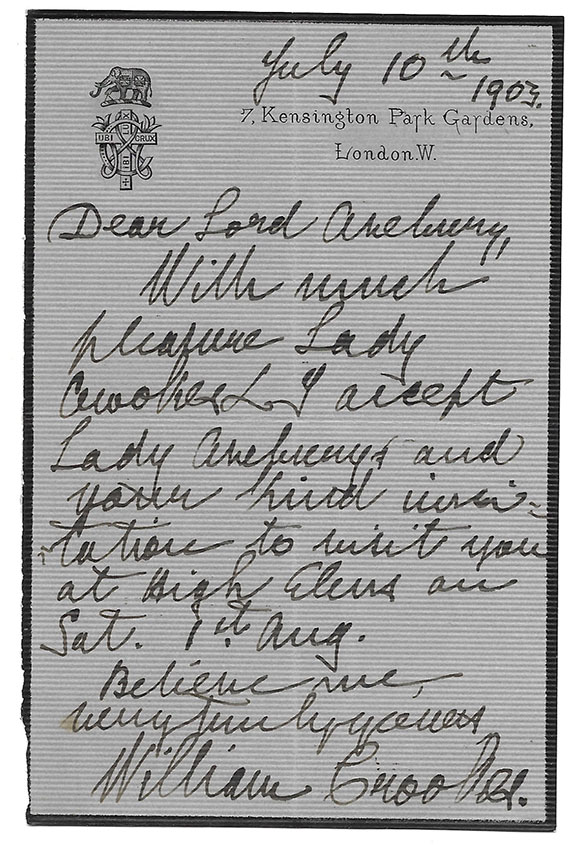 July 10th
1903.
UBI CRUX
7, Kensington Park Gardens,
London.W.
Dear Lord Avebury,
With much
pleasure Lady
Crookes & I accept
Lady Avebury's and
your kind invi=
=tation to visit you
at High Elms on
Sat. 1st Aug.
Believe me,
very truly yours
William Crookes.